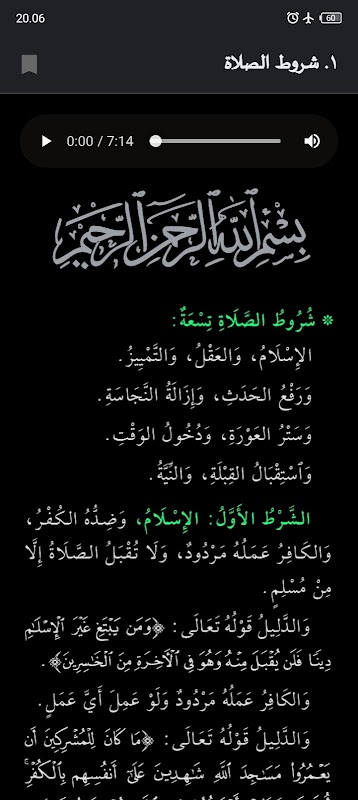 20.06
60
١. شروط الصلاة
0:00 / 7:14
بِسْمِ ٱللَّهِ ٱلرَّحْمَنِ ٱلرَّحِيمِ
* شُرُوطُ الصَّلَاةِ تِسْعَةٌ:
الإِسْلَامُ، وَالعَقْلُ، وَالتَّمْيِيزُ.
وَرَفْعُ الحَدَثِ، وَإِزَالَةُ النَّجَاسَةِ.
وَسَتْرُ العَوْرَةِ، وَدُخُولُ الوَقْتِ.
وَٱسْتِقْبَالُ القِبْلَةِ، وَالنِّيَّةُ.
الشَّرْطُ الأَوَّلُ: الإِسْلَامُ، وَضِدُّهُ الكُفْرُ،
وَالكَافِرُ عَمَلُهُ مَرْدُودٌ، وَلَا تُقْبَلُ الصَّلَاةُ إِلَّا
مِنْ مُسْلِمٍ.
وَالدَّلِيلُ قَوْلُهُ تَعَالَى: ﴿وَمَن يَبْتَغِ غَيْرَ ٱلْإِسْلَٰمِ
دِينًا فَلَن يُقْبَلَ مِنْهُ وَهُوَ فِي ٱلْآخِرَةِ مِنَ ٱلْخَاسِرِينَ﴾.
وَالكَافِرُ عَمَلُهُ مَرْدُودٌ وَلَوْ عَمِلَ أَيَّ عَمَلٍ.
وَالدَّلِيلُ قَوْلُهُ تَعَالَى: ﴿مَا كَانَ لِلْمُشْرِكِينَ أَن
يَعْمُرُوا۟ مَسَٰجِدَ ٱللَّهِ شَٰهِدِينَ عَلَىٰٓ أَنفُسِهِم بِٱلْكُفْرِۚ